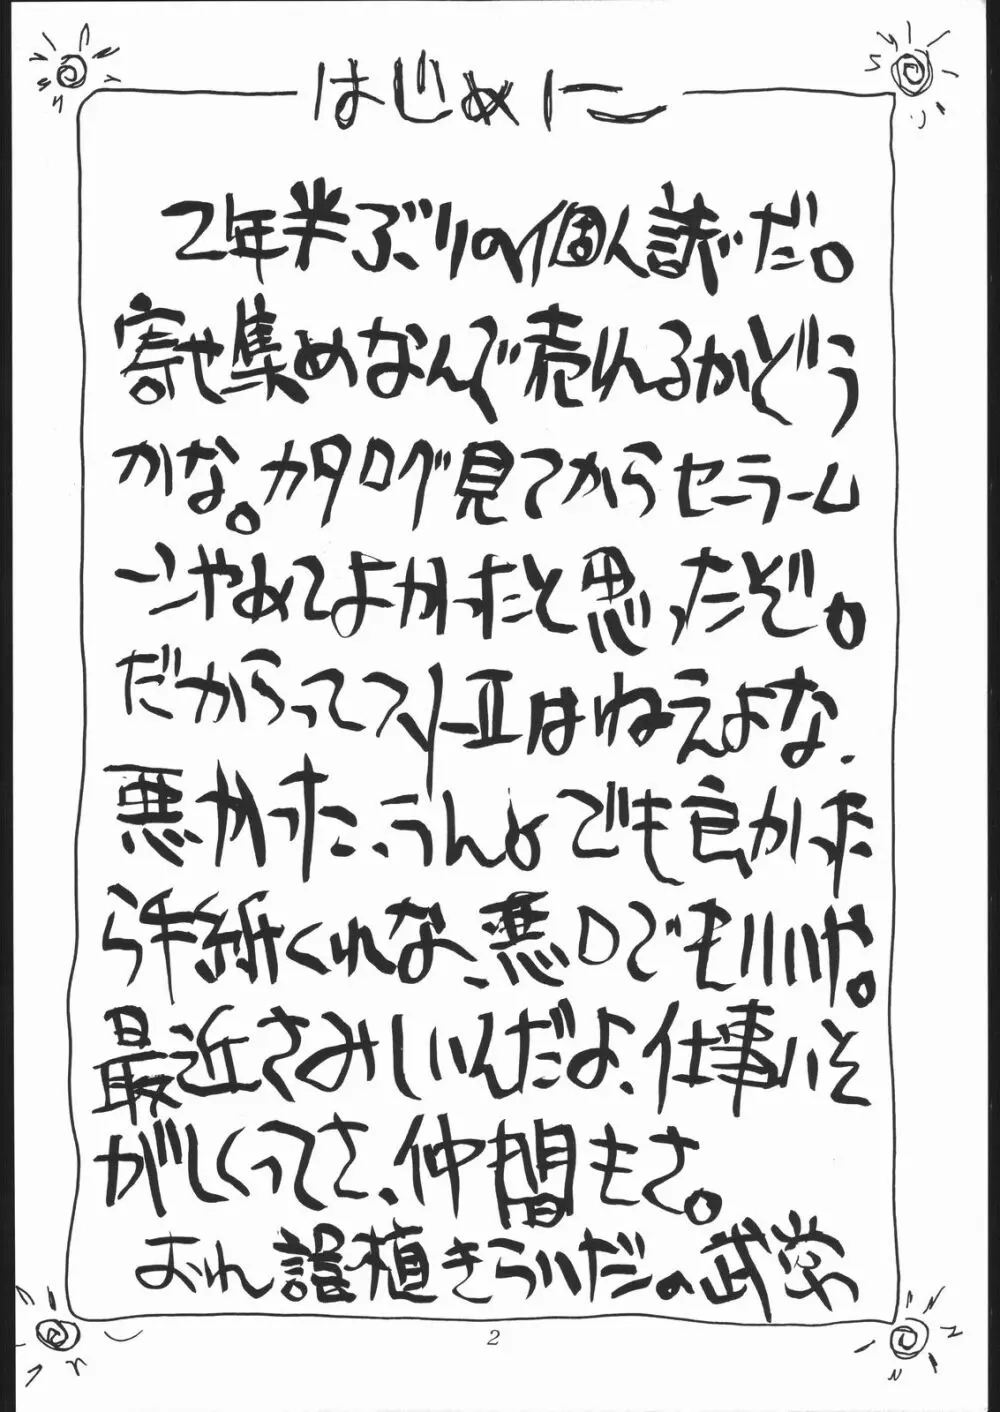 はじめに
2年半ぶりの個人誌だ。
寄せ集めなんで売れるかどう
かな。カタログ見てからセーラーム
ーンやめてよかったと思ったぞ。
だからってスリーエはねえよな、
悪かった、うんよでも良かった
ら手紙くれな、悪口でもいいや。
最近さみしいんだよ、仕事いそ
がしくってさ、仲間もさ。
おれ誤植きらいだの武堂
2